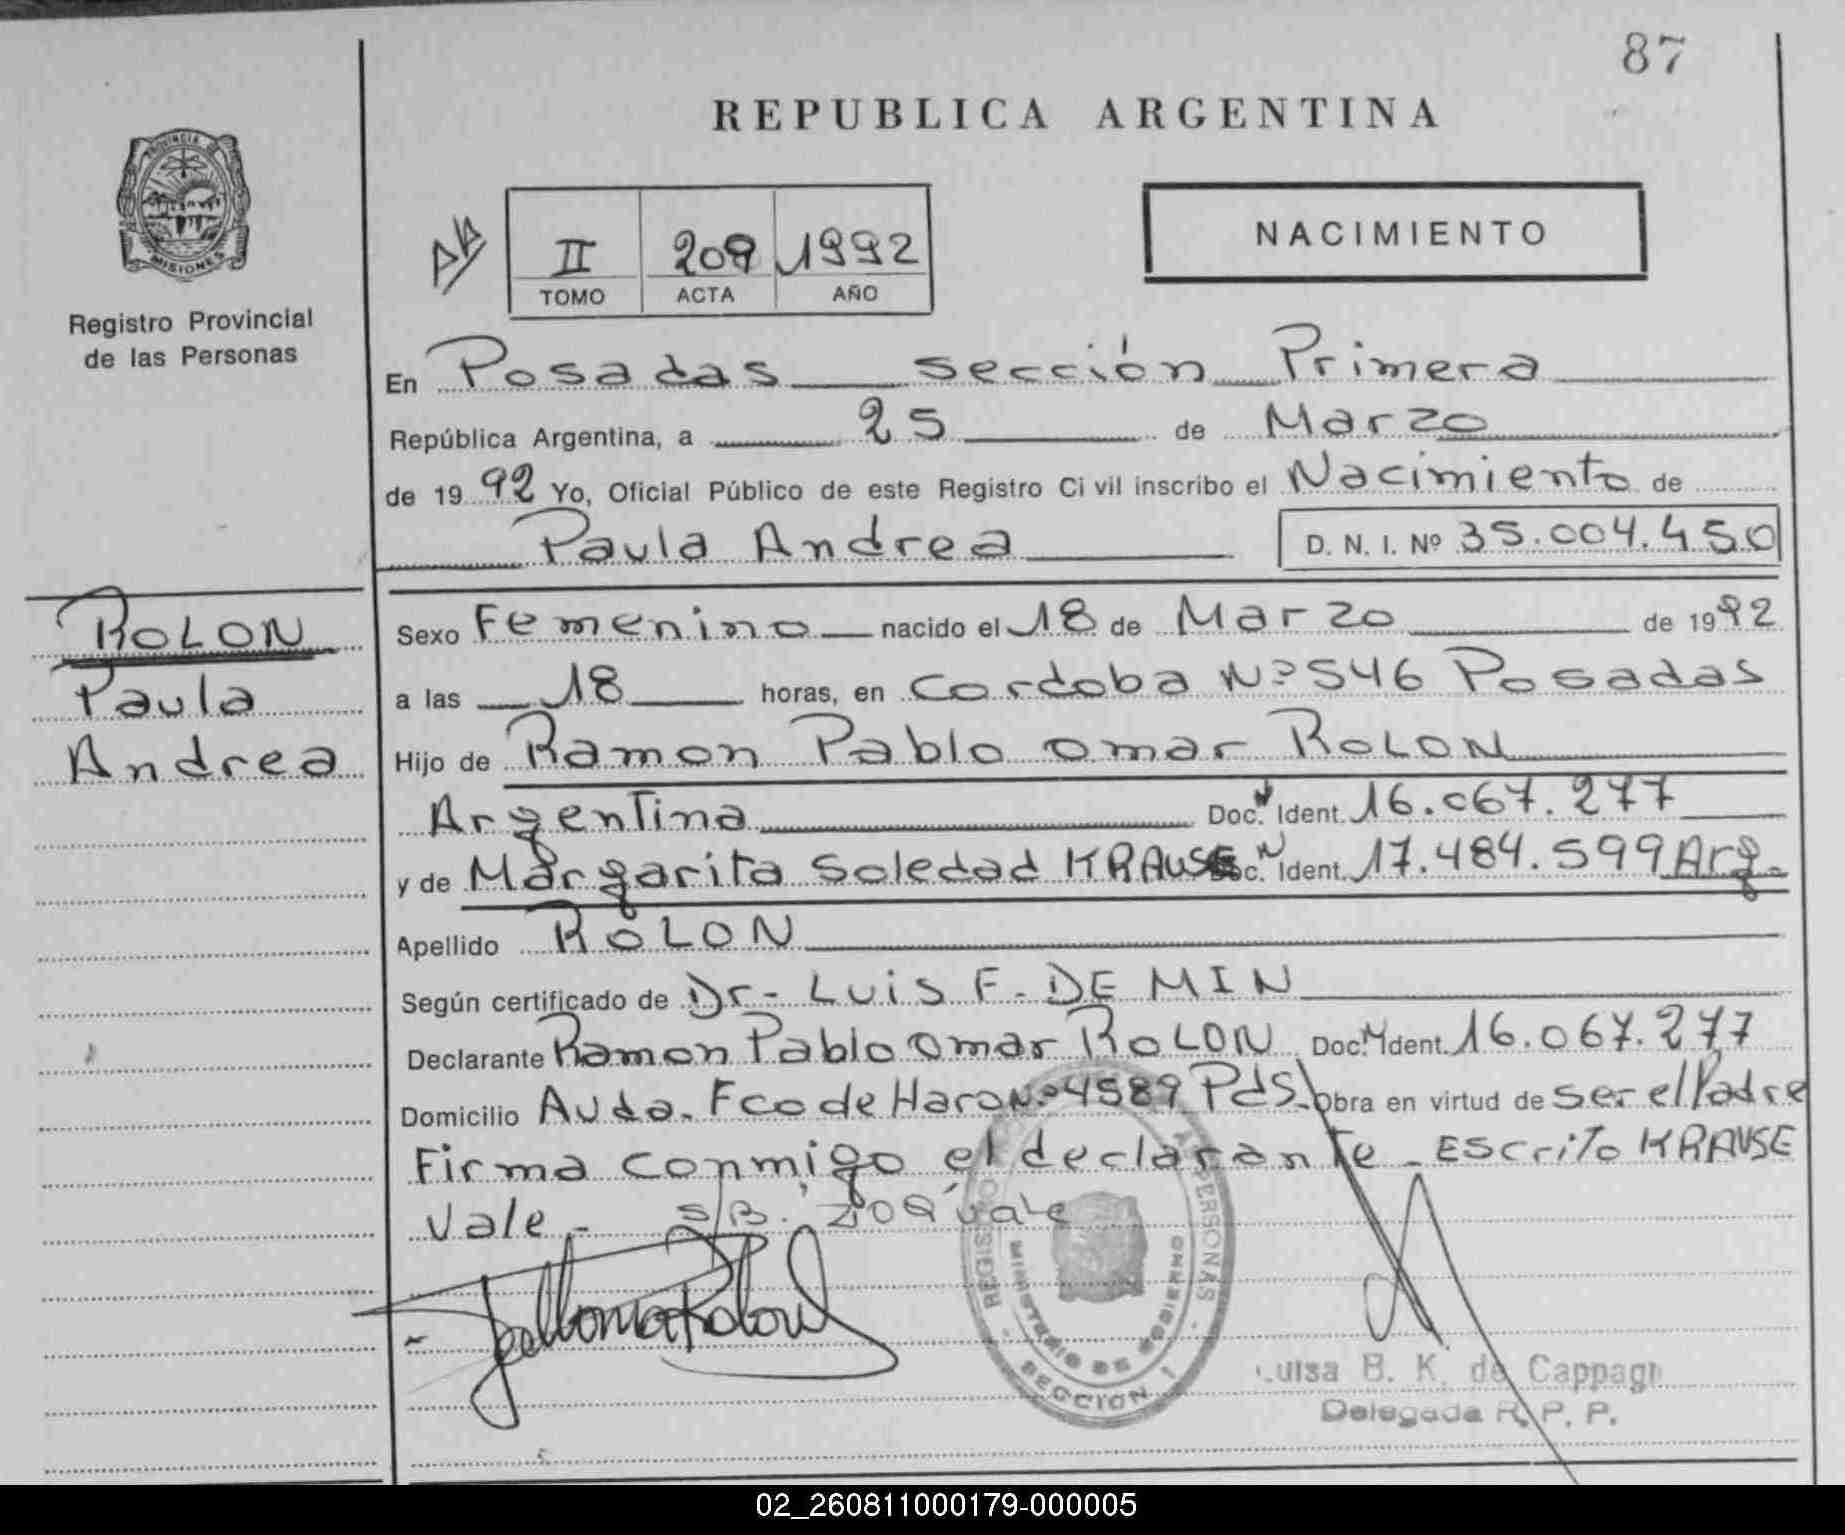 87
REPUBLICA ARGENTINA
PROVINCIA DE
MISIONES
Registro Provincial
de las Personas
II 209 1992
TOMO ACTA AÑO
NACIMIENTO
En Posadas sección Primera
República Argentina, a 25 de Marzo
de 1992 Yo, Oficial Público de este Registro Civil inscribo el Nacimiento de
Paula Andrea D. N. I. Nº 35.004.450
ROLON
Paula
Andrea
Sexo Femenino nacido el 18 de Marzo de 1992
a las 18 horas, en Cordoba Nº 546 Posadas
Hijo de Ramon Pablo Omar ROLON
Argentina Doc. N Ident. 16.067.277
y de Margarita Soledad KRAUSE Doc. N Ident. 17.484.599 Arg.
Apellido ROLON
Según certificado de Dr. Luis F. DE MIN
Declarante Ramon Pablo Omar ROLON Doc. N Ident. 16.067.277
Domicilio Avda. Fco de Haro Nº 4589 Pds. Obra en virtud de ser el Padre
Firma conmigo el declarante - Escrito KRAUSE
Vale - S/B. 209 vale
PERSONAS
MINISTERIO DE GOBIERNO
SECCION 1
Luisa B. K. de Cappagli
Delegada R. P. P.
02_260811000179-000005